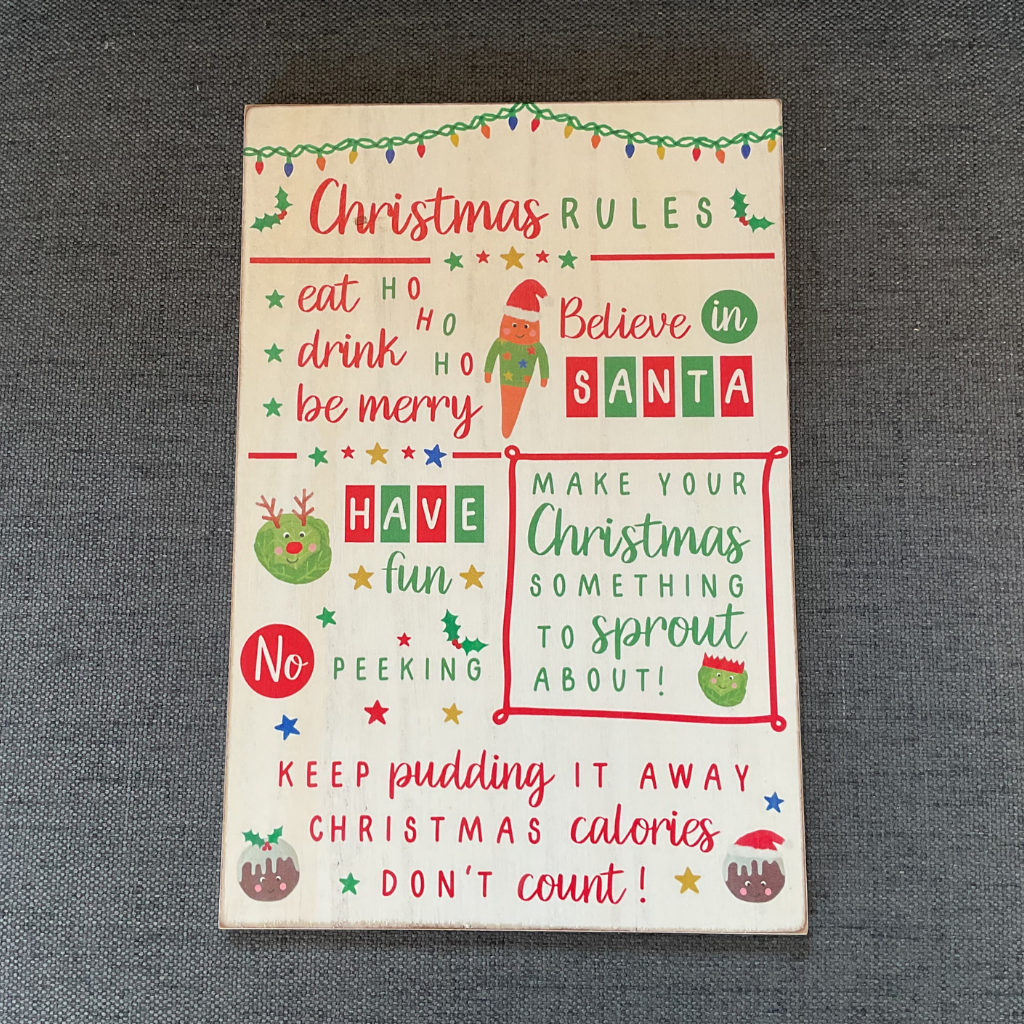 Christmas RULES
eat HO
HO
drink HO
be merry
Believe in
SANTA
HAVE
fun
No PEEKING
MAKE YOUR
Christmas
SOMETHING
TO sprout
ABOUT!
KEEP pudding IT AWAY
CHRISTMAS calories
DON'T count!